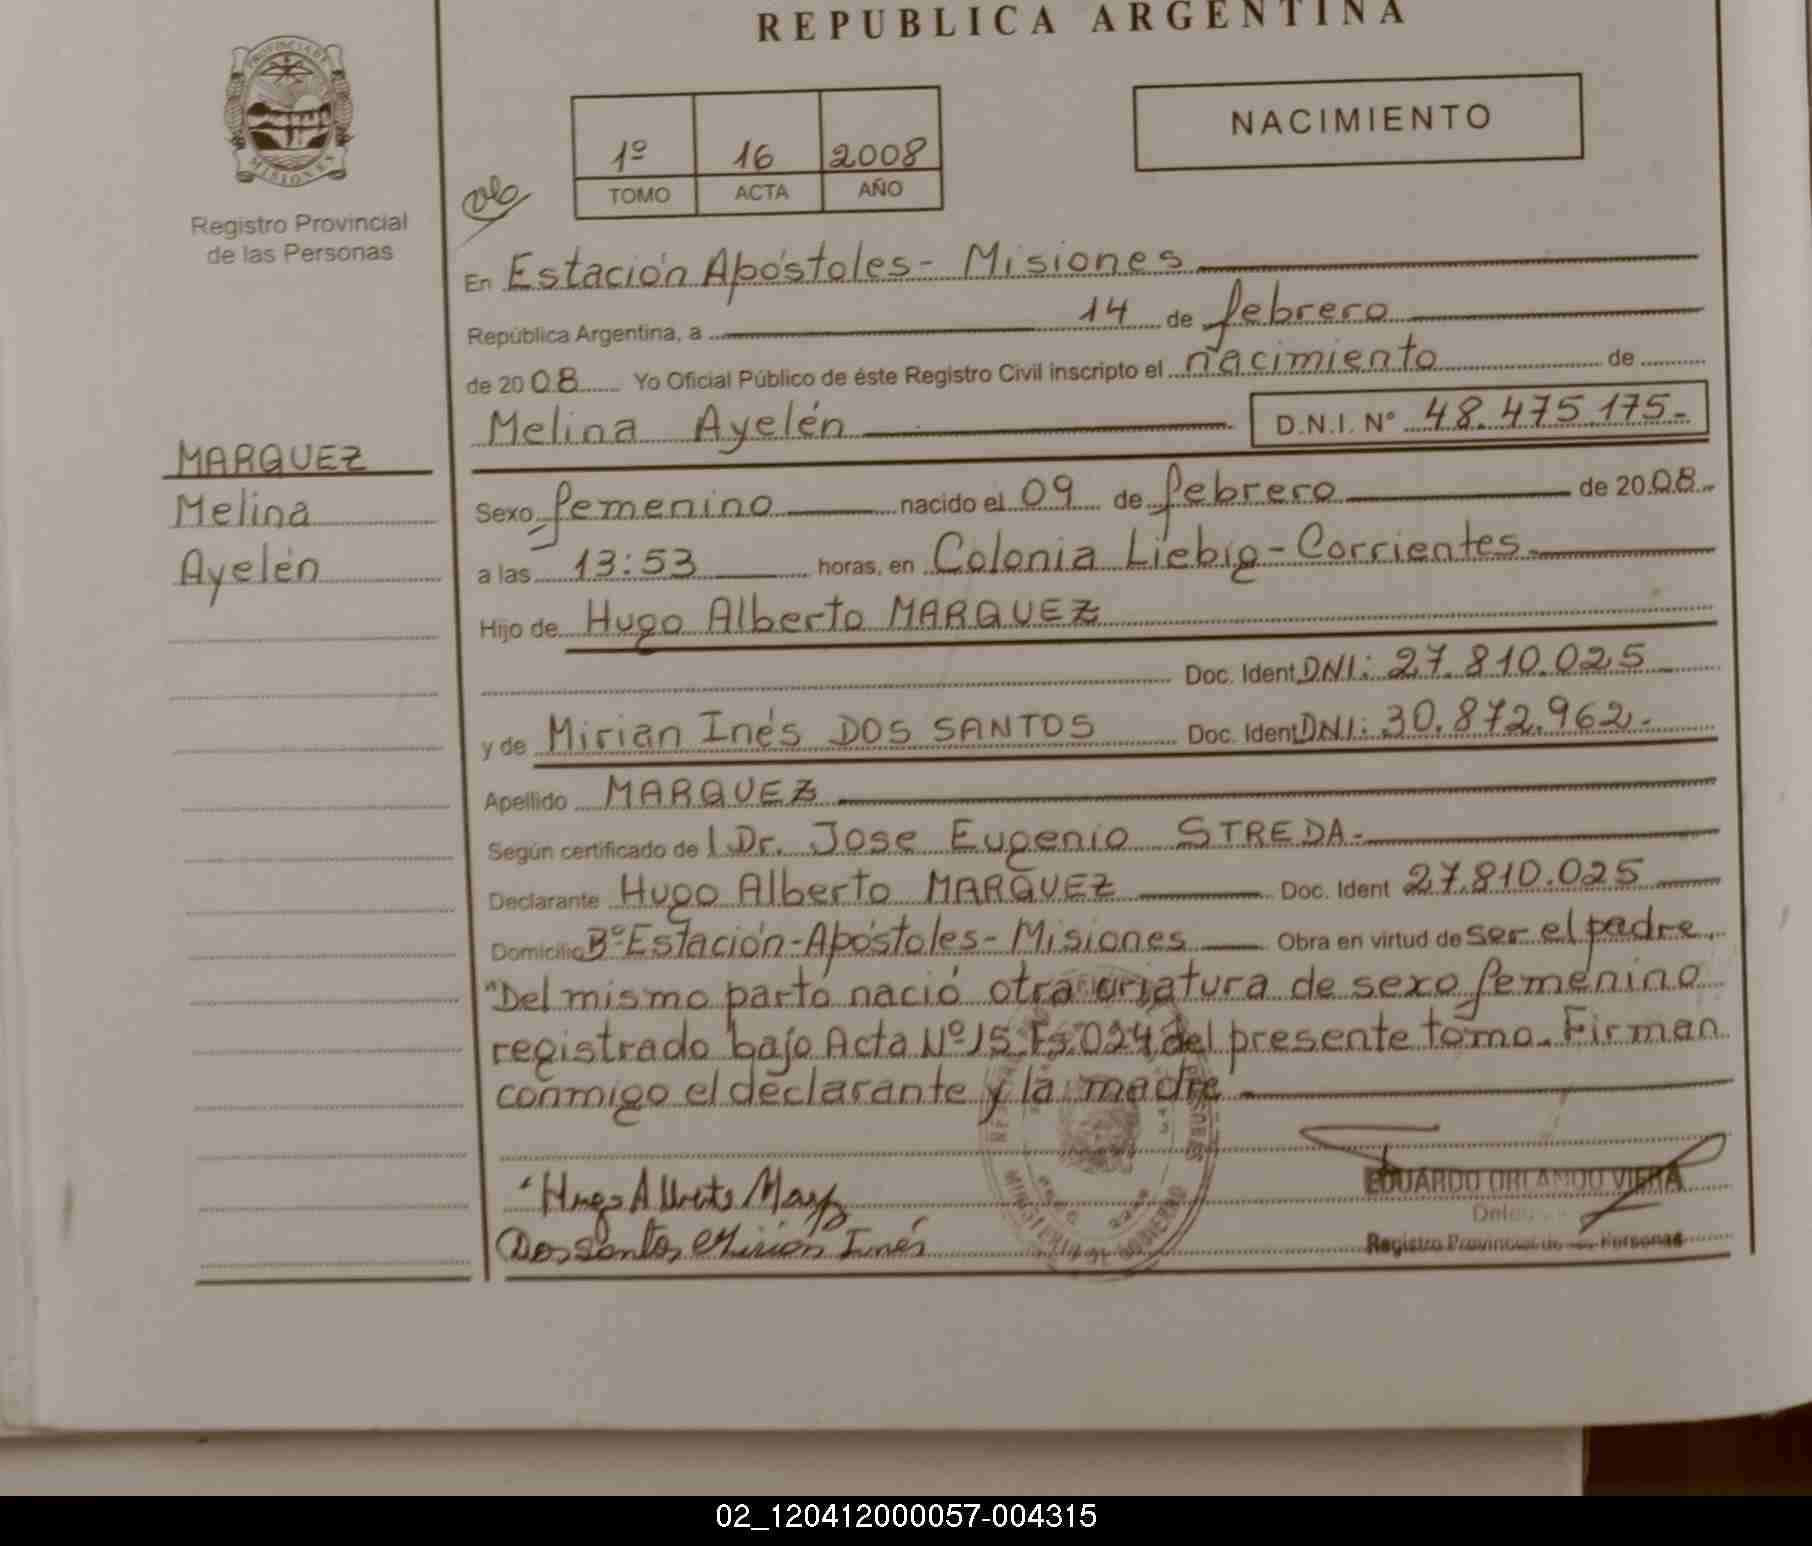 REPUBLICA ARGENTINA
PROVINCIA DE MISIONES
Registro Provincial
de las Personas
1º 16 2008
TOMO ACTA AÑO
NACIMIENTO
En Estación Apóstoles - Misiones
República Argentina, a 14 de febrero
de 2008 Yo Oficial Público de éste Registro Civil inscripto el nacimiento de
Melina Ayelén D.N.I. Nº 48.475.175.-
MARQUEZ
Melina
Ayelén
Sexo femenino nacido el 09 de febrero de 2008.-
a las 13:53 horas, en Colonia Liebig - Corrientes.
Hijo de Hugo Alberto MARQUEZ
Doc. Ident DNI: 27.810.025
y de Mirian Inés DOS SANTOS Doc. Ident DNI: 30.872.962.-
Apellido MARQUEZ
Según certificado de l Dr. Jose Eugenio STREDA.-
Declarante Hugo Alberto MARQUEZ Doc. Ident 27.810.025
Domicilio Bº Estación - Apóstoles - Misiones Obra en virtud de ser el padre.
"Del mismo parto nació otra criatura de sexo femenino
registrado bajo Acta Nº 15. Fs. 024 del presente tomo. Firman
conmigo el declarante y la madre
Hugo Alberto
Dos santos Mirian Inés
EDUARDO ORLANDO VIERA
Registro Provincial de las Personas
MINISTERIO DE GOBIERNO
02_120412000057-004315